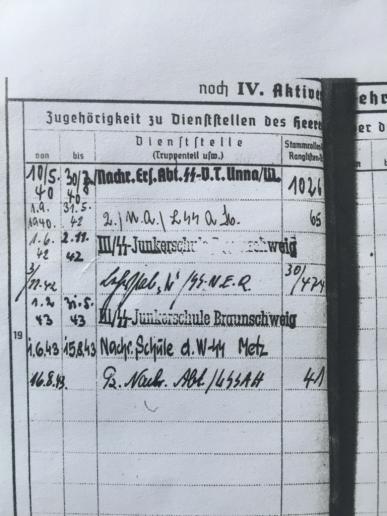 noch IV. Aktiver
ehr
Zugehörigkeit zu Dienststellen des Heeres
er d
von bis Dienststelle (Truppenteil usw.) Stammrollen Ranglisten
10/5. 40 Nachr. Ers. Abt. SS-V.T. Unna/W. 1026
1.9. 1940. 31.5. 42 2./N.A./LSSA 65
1.6. 42 2.11. 42 III/SS-Junkerschule Braunschweig
3/11.42 /SS-N.E.R. 30/
1.2. 43 31.5. 43 III/SS-Junkerschule Braunschweig
19
1.6.43 15.8.43 Nachr. Schule d. W-SS Metz
16.8.43. Pz. Nachr. Abt./LSSAH 41